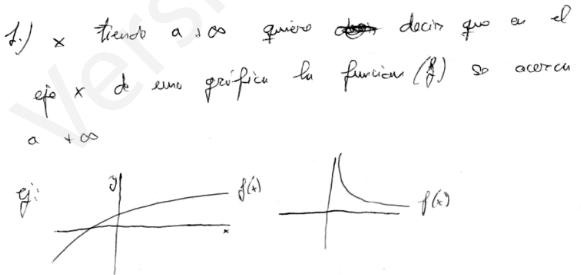 1.) x tiende a +∞ quiere decir que en el
eje x de una gráfica la funcion (f) se acerca
a +∞
ej:
y
f(x)
x
f(x)